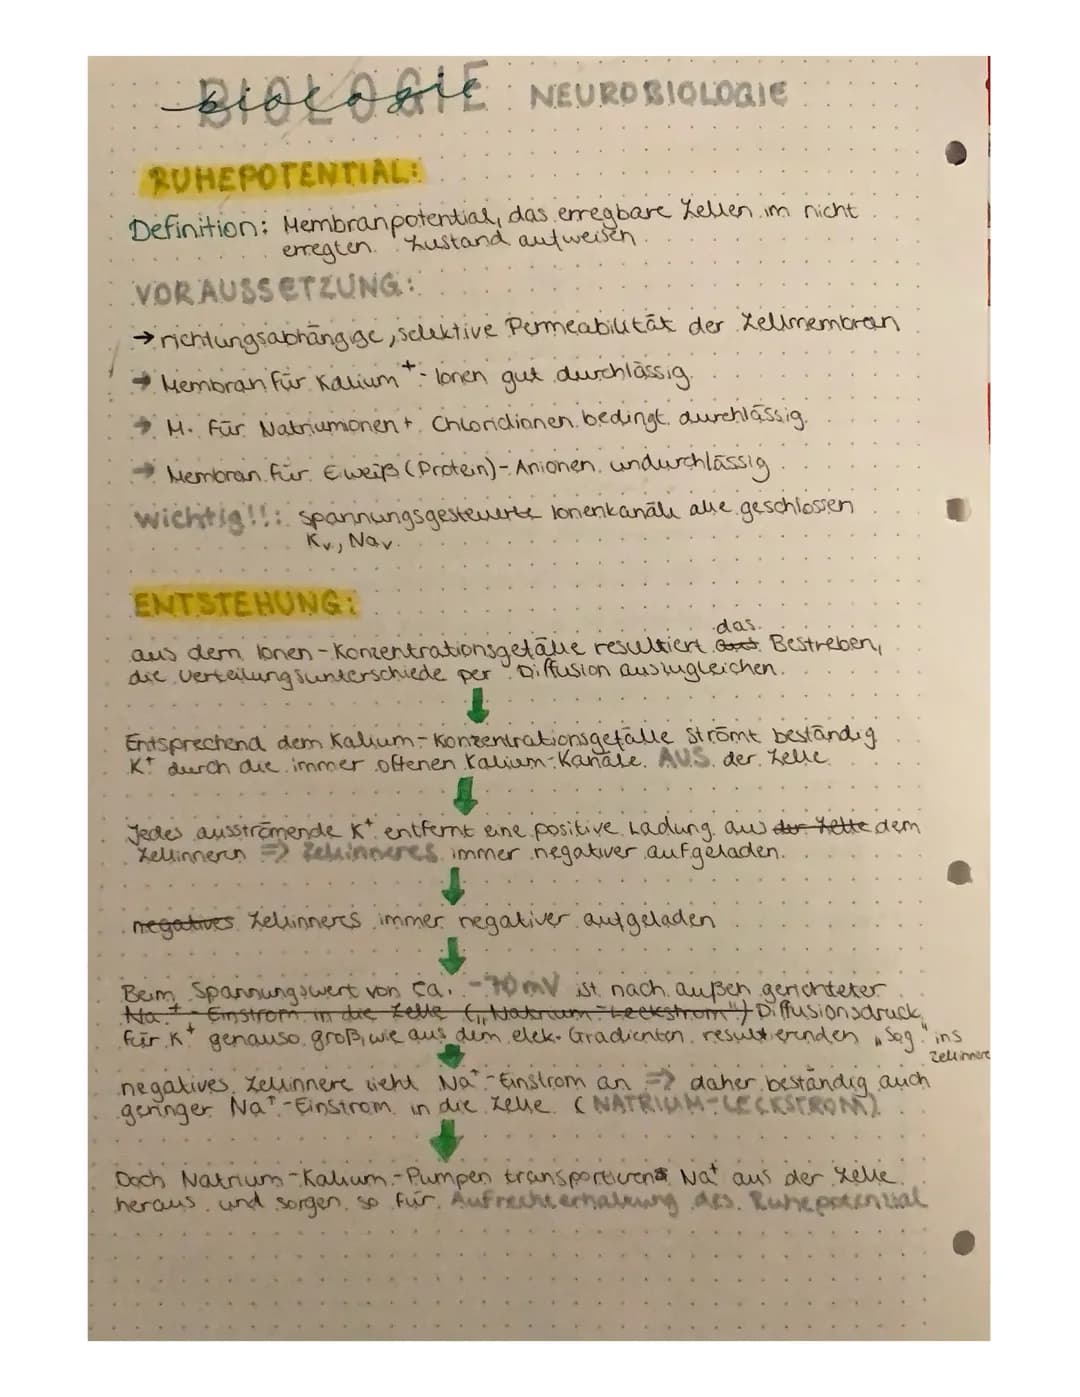 BIOLOGIE biologie NEUROBIOLOGIE
RUHEPOTENTIAL:
Definition: Membranpotential, das erregbare Zellen im nicht
erregten Zustand aufweisen.
VORAUSSETZUNG:
→ richtungsabhängige, selektive Permeabilität der Zellmembran
→ Membran für Kalium⁺-Ionen gut durchlässig.
→ M. für Natriumionen + Chloridionen bedingt durchlässig.
→ Membran für Eiweiß (Protein)-Anionen undurchlässig
wichtig!!: spannungsgesteuerte Ionenkanäle alle geschlossen
Kv, Nav.
ENTSTEHUNG:
das
aus dem Ionen-Konzentrationsgefälle resultiert Bestreben,
die Verteilungsunterschiede per Diffusion auszugleichen.
Entsprechend dem Kalium-Konzentrationsgefälle strömt beständig
K⁺ durch die immer offenen Kalium-Kanäle AUS der Zelle
Jedes ausströmende K⁺ entfernt eine positive Ladung aus der Zelle dem
Zellinneren => Zellinneres immer negativer aufgeladen.
negatives Zellinneres immer negativer aufgeladen
Beim Spannungswert von ca. -70mV ist nach außen gerichteter
Na⁺-Einstrom in die Zelle („Natrium-Leckstrom") Diffusionsdruck
für K⁺ genauso groß, wie aus dem elek. Gradienten resultierenden „Sog" ins
Zellinnere
negatives Zellinnere zieht Na⁺-Einstrom an => daher beständig auch
geringer Na⁺-Einstrom in die Zelle (NATRIUM-LECKSTROM)
Doch Natrium-Kalium-Pumpen transportieren Na⁺ aus der Zelle
heraus und sorgen so für Aufrechterhaltung des Ruhepotential